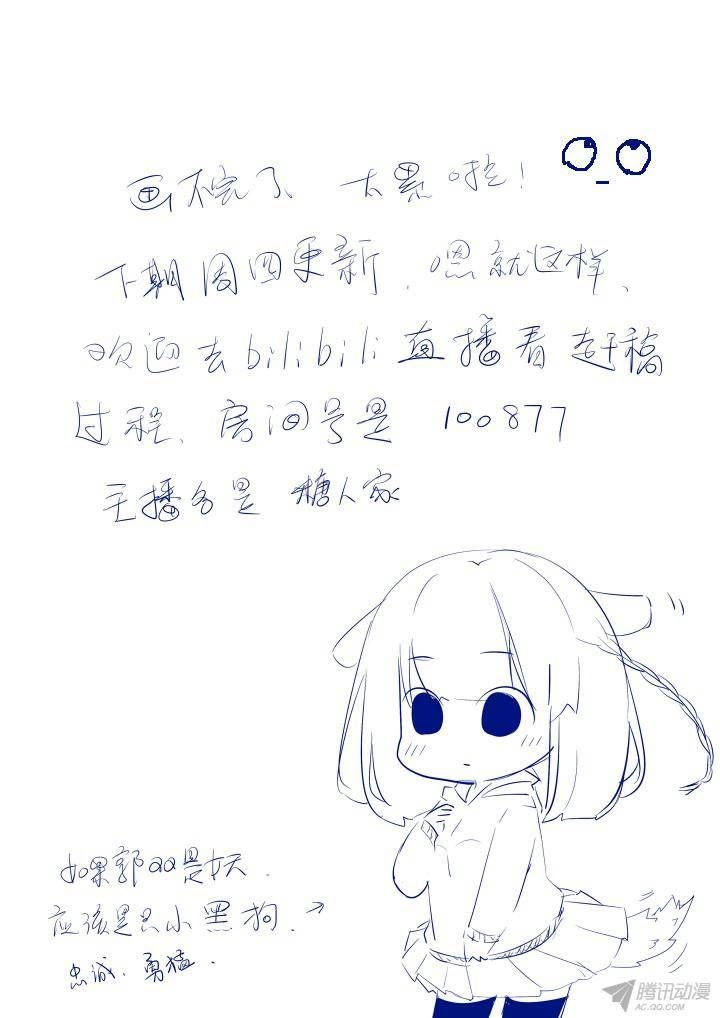 画不完了、太累啦！
下期周四更新，嗯就这样、
欢迎去bilibili直播看赶稿
过程、房间号是 100877
主播名是 糖人家
如果郭QQ是妖，
应该是只小黑狗，→
忠诚、勇猛．
腾讯动漫
AC.QQ.COM